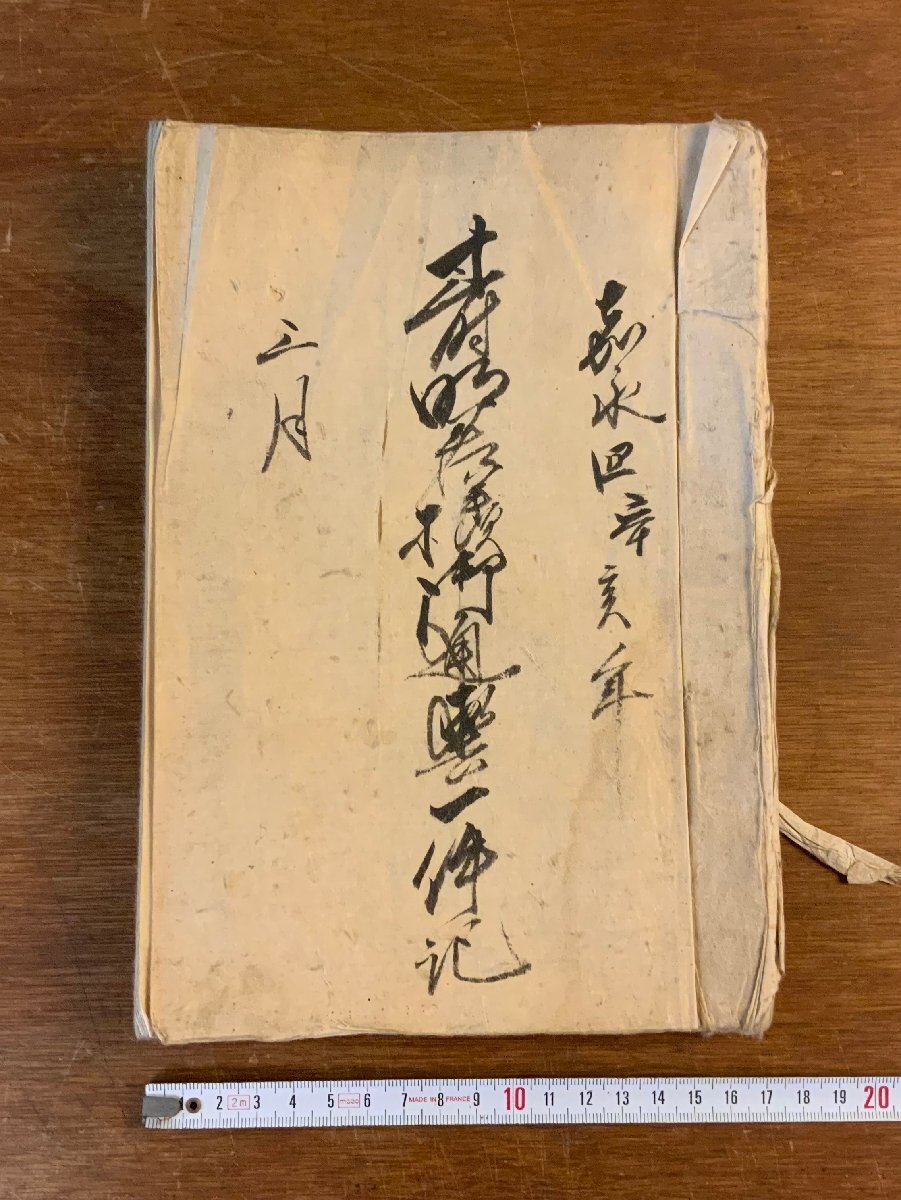 嘉永四辛亥年
寿明君様御通輿一件記
三月
1 2 2m 3 4 5 6 7 MADE IN FRANCE 8 9 10 11 12 13 14 15 16 17 18 19 20